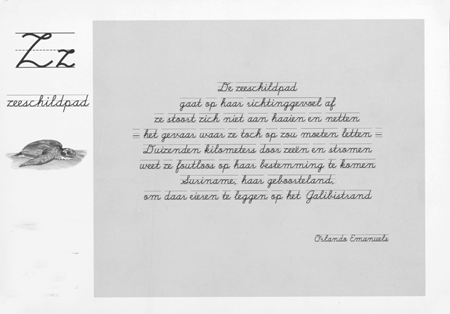 Zz
zeeschildpad
De zeeschildpad
gaat op haar richtinggevoel af
ze stoort zich niet aan haaien en netten
= het gevaar waar ze toch op zou moeten letten =
Duizenden kilometers door zeeën en stromen
weet ze foutloos op haar bestemming te komen
Suriname, haar geboorteland,
om daar eieren te leggen op het Galibistrand
Orlando Emanuels